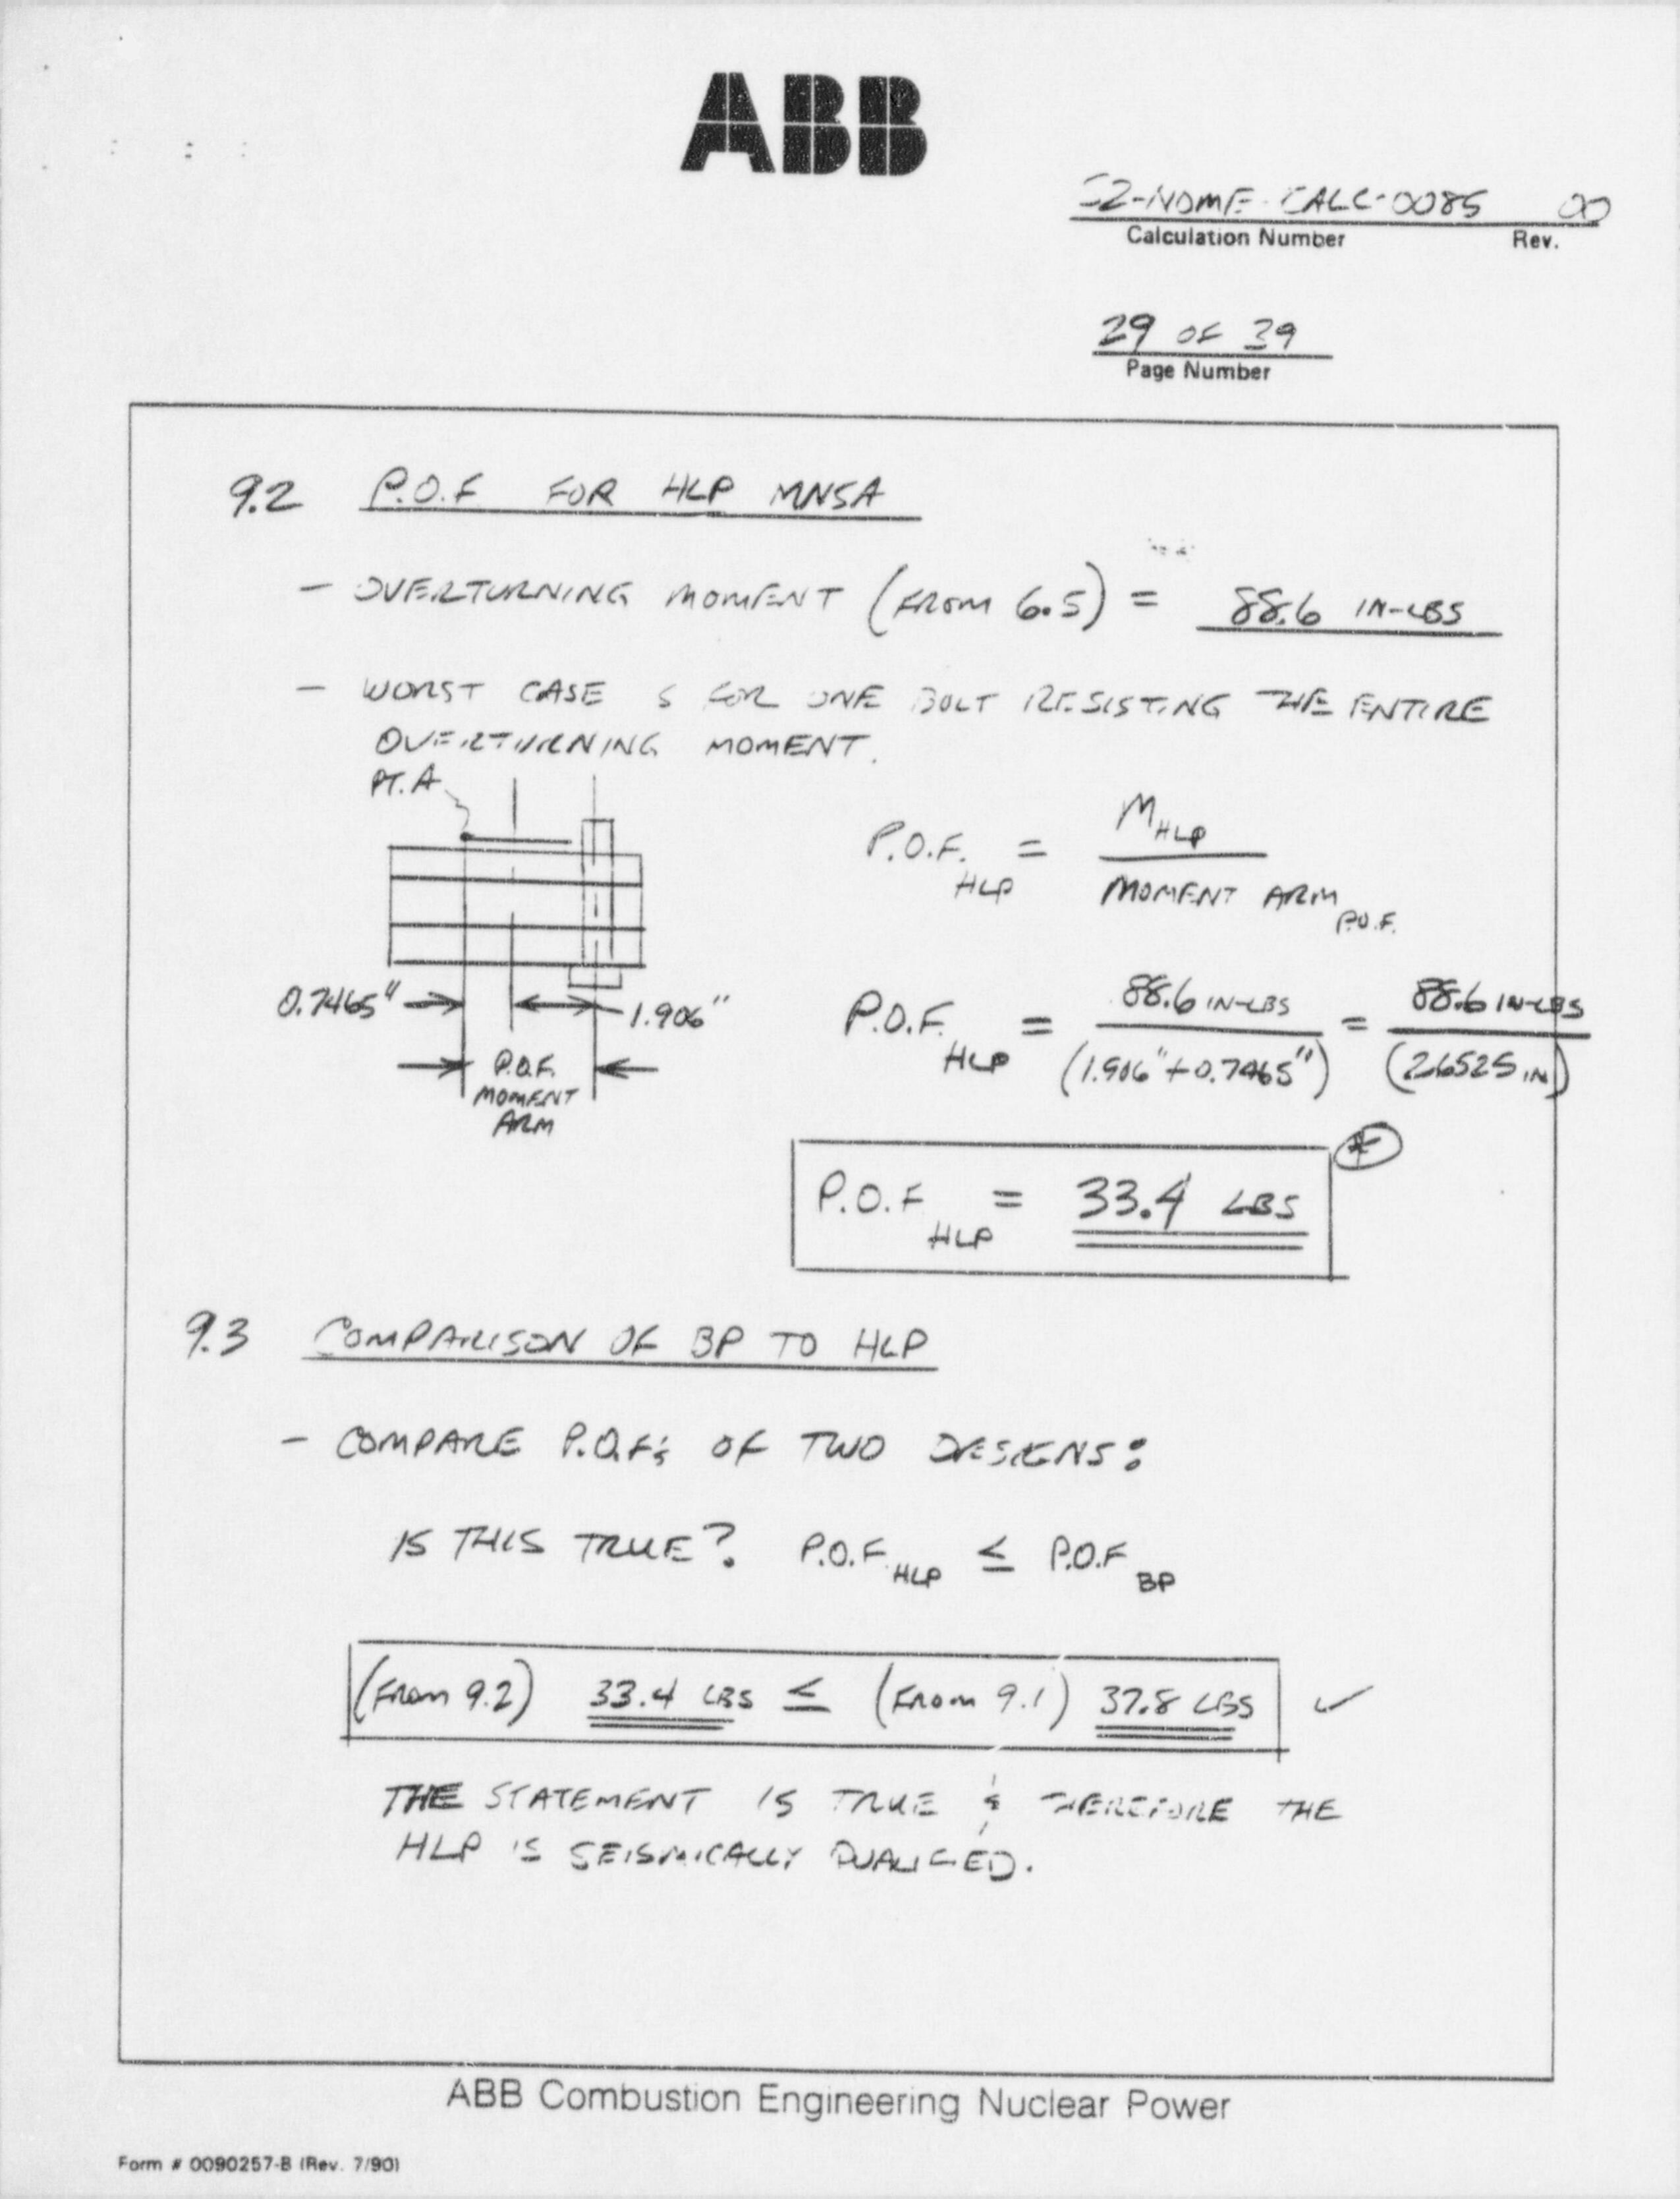 ABB
S2-NOME-CALC-0085 00
Calculation Number Rev.
29 OF 39
Page Number
9.2 P.O.F FOR HLP MNSA
- OVERTURNING MOMENT (FROM 6.5) = 88.6 IN-LBS
- WORST CASE IS FOR ONE BOLT RESISTING THE ENTIRE
OVERTURNING MOMENT.
PT. A
P.O.F. HLP = M HLP / MOMENT ARM P.O.F.
0.7465" 1.906"
P.O.F. MOMENT ARM
P.O.F. HLP = 88.6 IN-LBS / (1.906" + 0.7465") = 88.6 IN-LBS / (2.6525 IN)
P.O.F HLP = 33.4 LBS *
9.3 COMPARISON OF BP TO HLP
- COMPARE P.O.F's OF TWO DESIGNS:
IS THIS TRUE? P.O.F HLP ≤ P.O.F BP
(FROM 9.2) 33.4 LBS ≤ (FROM 9.1) 37.8 LBS ✓
THE STATEMENT IS TRUE & THEREFORE THE
HLP IS SEISMICALLY QUALIFIED.
ABB Combustion Engineering Nuclear Power
Form # 0090257-B (Rev. 7/90)